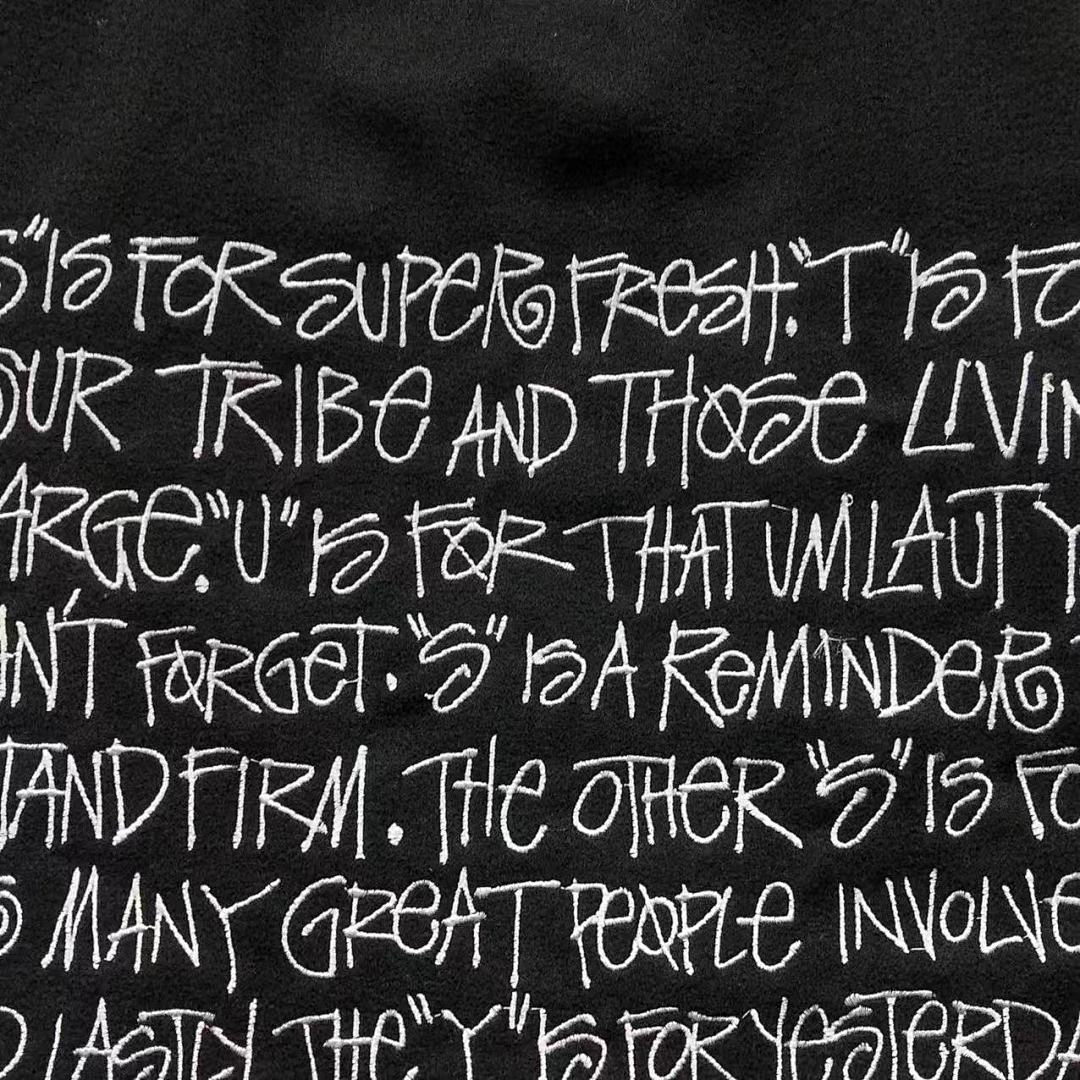 S" IS FOR SUPER FRESH. "T" IS FO
OUR TRIBE AND THOSE LIVIN
ARGE. "U" IS FOR THAT UMLAUT Y
AN'T FORGET. "S" IS A REMINDER
TAND FIRM. THE OTHER "S" IS FO
MANY GREAT PEOPLE INVOLVE
LASTLY THE "Y" IS FOR YESTERDA